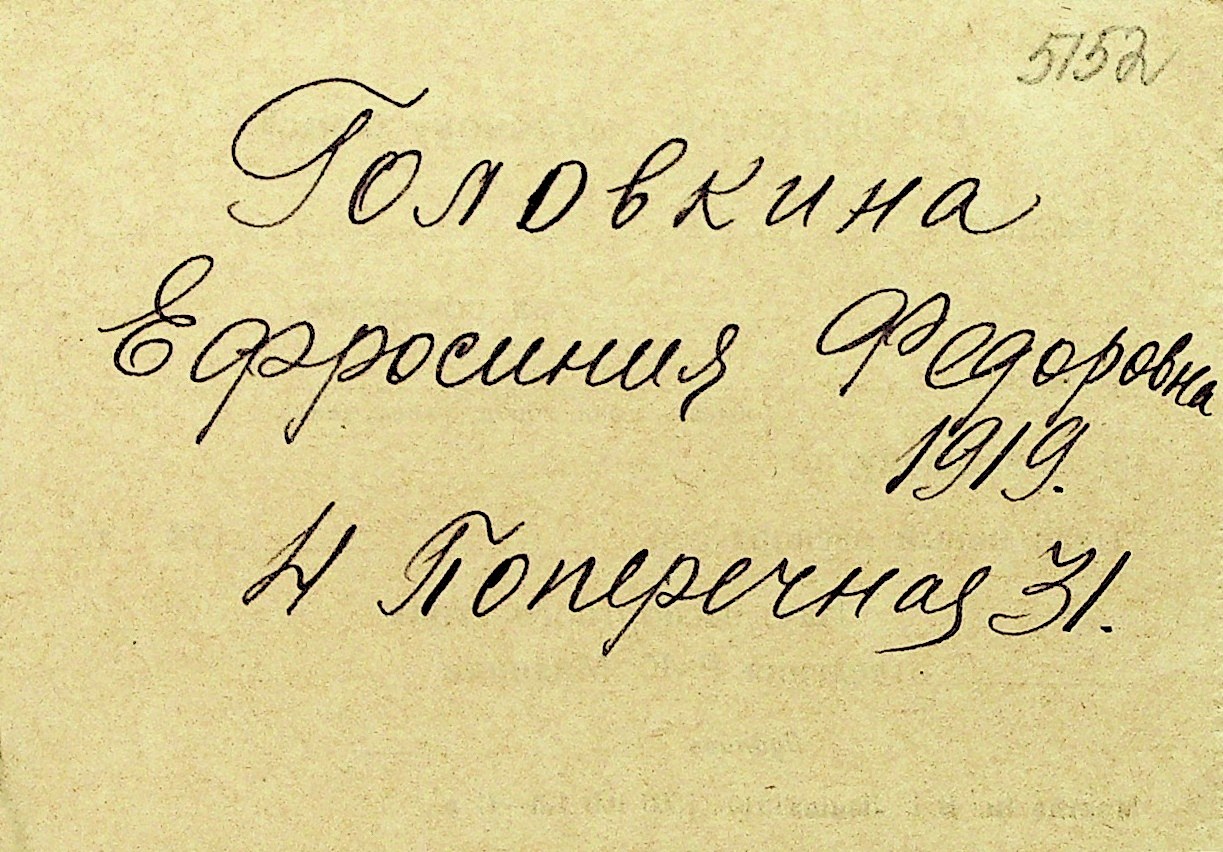 5152
Головкина
Ефросиния Федоровна
1919.
4 Поперечная 31.